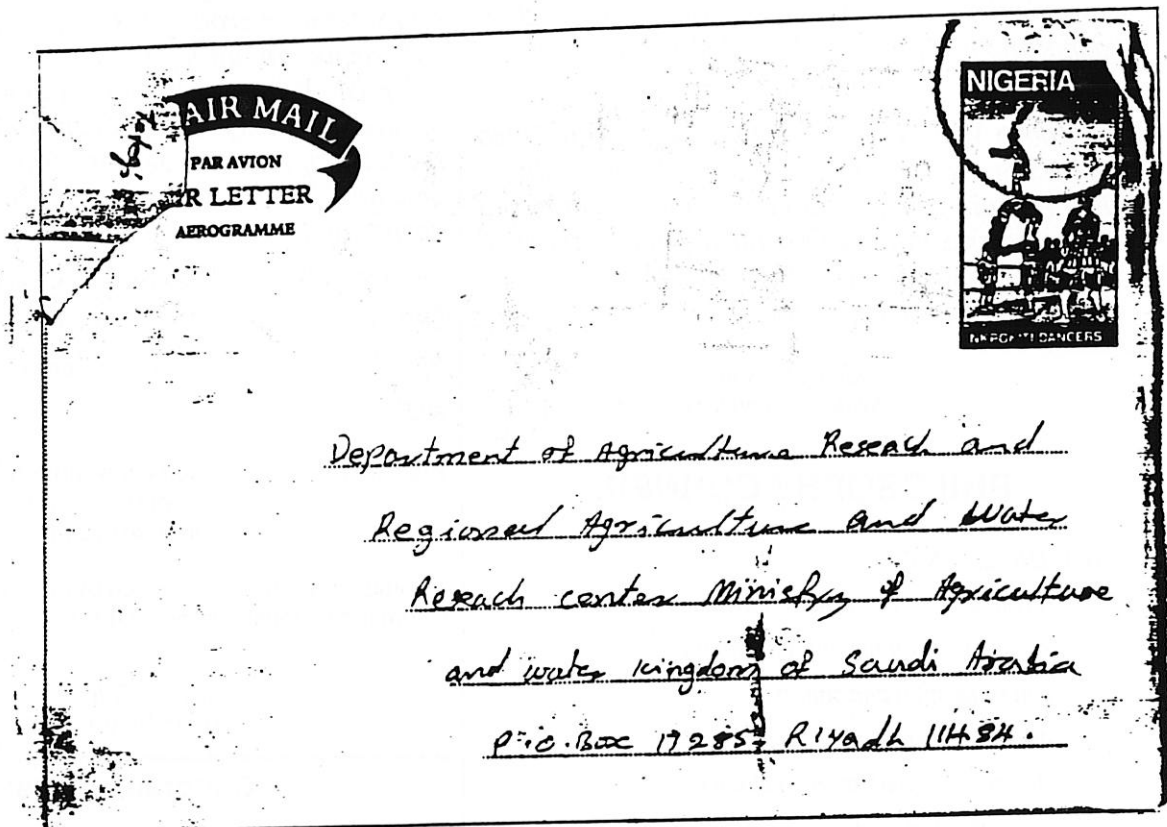 AIR MAIL
PAR AVION
R LETTER
AEROGRAMME
NIGERIA
DANCERS
Department of Agriculture Reseach and
Regional Agriculture and Water
Reseach center Ministry of Agriculture
and water kingdom of Saudi Arabia
P.O. Box 17285 Riyadh 11484.